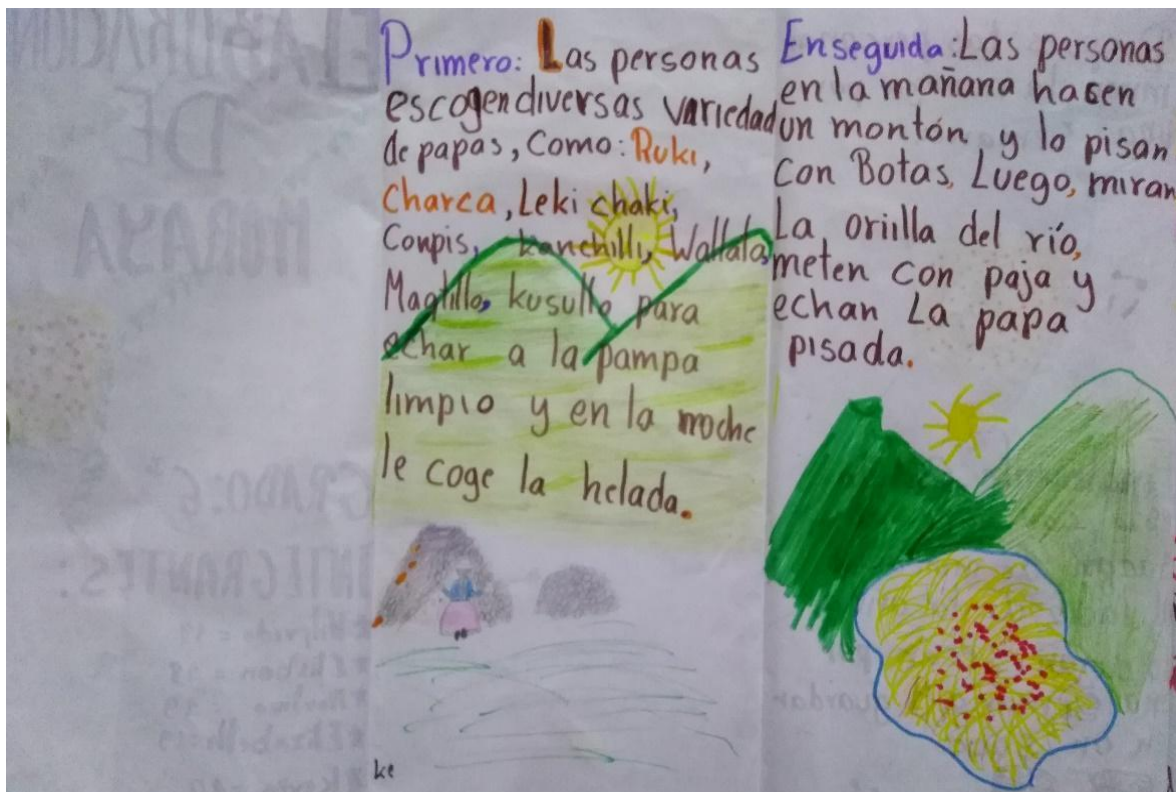 Primero: Las personas
escogen diversas variedad
de papas, Como: Ruki,
Charca, Leki chaki,
Conpis, kanchilli, Wallata,
Magtillo, kusullo para
echar a la pampa
limpio y en la noche
le coge la helada.
ke
Enseguida: Las personas
en la mañana hacen
un montón y lo pisan
con Botas, Luego, miran
La oriilla del río,
meten con paja y
echan La papa
pisada.
ELABORACION
DE
MORAYA
GRADO: 6°
INTEGRANTES: